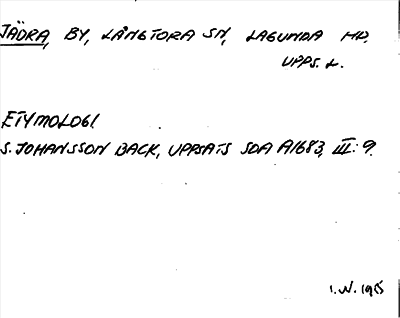 JÄDRA, BY, LÅNGTORA SN, LAGUNDA HD,
UPPS. L.
ETYMOLOGI
S. JOHANSSON BACK, UPPSATS SOA A1683, III: 9.
I.W. 1985